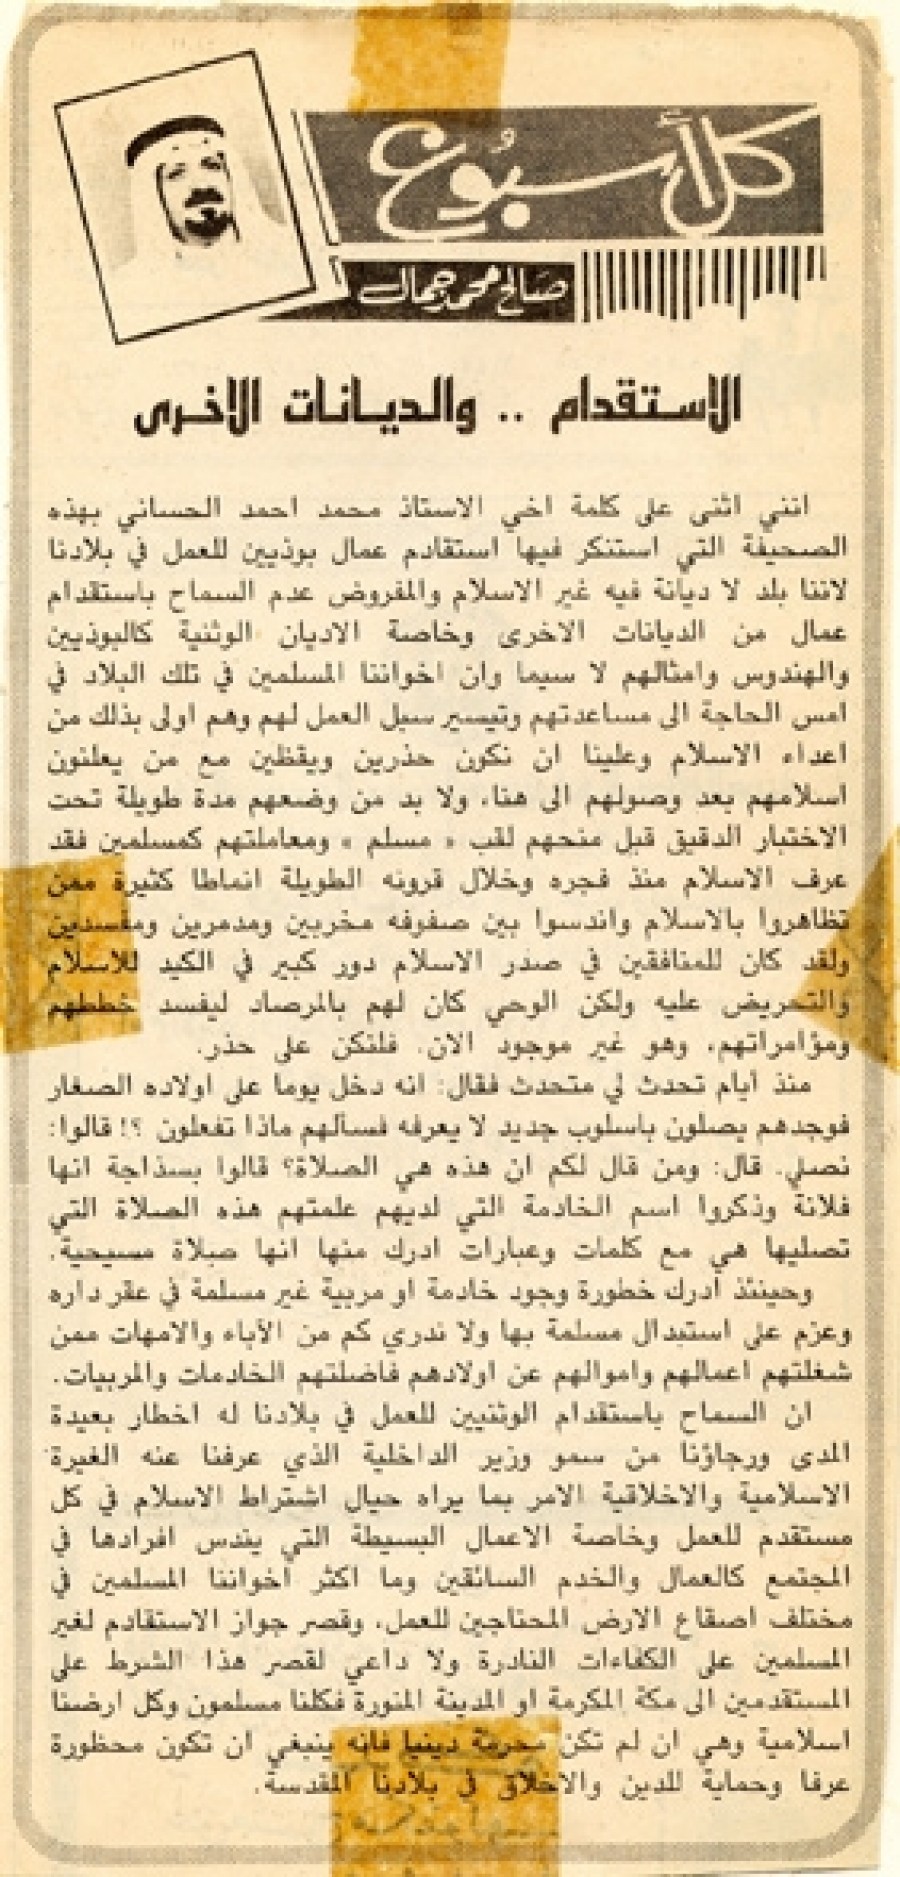 كل أسبوع
صالح محمد جمال
الاستقدام .. والديانات الاخرى
انني اثنى على كلمة اخي الاستاذ محمد احمد الحساني بهذه
الصحيفة التي استنكر فيها استقادم عمال بوذيين للعمل في بلادنا
لاننا بلد لا ديانة فيه غير الاسلام والمفروض عدم السماح باستقدام
عمال من الديانات الاخرى وخاصة الاديان الوثنية كالبوذيين
والهندوس وامثالهم لا سيما وان اخواننا المسلمين في تلك البلاد في
امس الحاجة الى مساعدتهم وتيسير سبل العمل لهم وهم اولى بذلك من
اعداء الاسلام وعلينا ان نكون حذرين ويقظين مع من يعلنون
اسلامهم بعد وصولهم الى هنا، ولا بد من وضعهم مدة طويلة تحت
الاختبار الدقيق قبل منحهم لقب « مسلم » ومعاملتهم كمسلمين فقد
عرف الاسلام منذ فجره وخلال قرونه الطويلة انماطا كثيرة ممن
تظاهروا بالاسلام واندسوا بين صفوفه مخربين ومدمرين ومفسدين
ولقد كان للمنافقين في صدر الاسلام دور كبير في الكيد للاسلام
والتحريض عليه ولكن الوحي كان لهم بالمرصاد ليفسد خططهم
ومؤامراتهم، وهو غير موجود الان. فلنكن على حذر.
منذ ايام تحدث لي متحدث فقال: انه دخل يوما على اولاده الصغار
فوجدهم يصلون باسلوب جديد لا يعرفه فسألهم ماذا تفعلون ؟! قالوا:
نصلي. قال: ومن قال لكم ان هذه هي الصلاة؟ قالوا بسذاجة انها
فلانة وذكروا اسم الخادمة التي لديهم علمتهم هذه الصلاة التي
تصليها هي مع كلمات وعبارات ادرك منها انها صلاة مسيحية.
وحينئذ أدرك خطورة وجود خادمة او مربية غير مسلمة في عقر داره
وعزم على استبدال مسلمة بها ولا ندري كم من الآباء والامهات ممن
شغلتهم اعمالهم واموالهم عن اولادهم فاضلتهم الخادمات والمربيات.
ان السماح باستقدام الوثنيين للعمل في بلادنا له اخطار بعيدة
المدى ورجاؤنا من سمو وزير الداخلية الذي عرفنا عنه الغيرة
الاسلامية والاخلاقية الامر بما يراه حيال اشتراط الاسلام في كل
مستقدم للعمل وخاصة الاعمال البسيطة التي يندس افرادها في
المجتمع كالعمال والخدم السائقين وما اكثر اخواننا المسلمين في
مختلف اصقاع الارض المحتاجين للعمل، وقصر جواز الاستقادم لغير
المسلمين على الكفاءات النادرة ولا داعي لقصر هذا الشرط على
المستقدمين الى مكة المكرمة او المدينة المنورة فكلنا مسلمون وكل ارضنا
اسلامية وهي ان لم تكن محرمة دينيا فانه ينبغي ان تكون محظورة
عرفا وحماية للدين والاخلاق في بلادنا المقدسة.